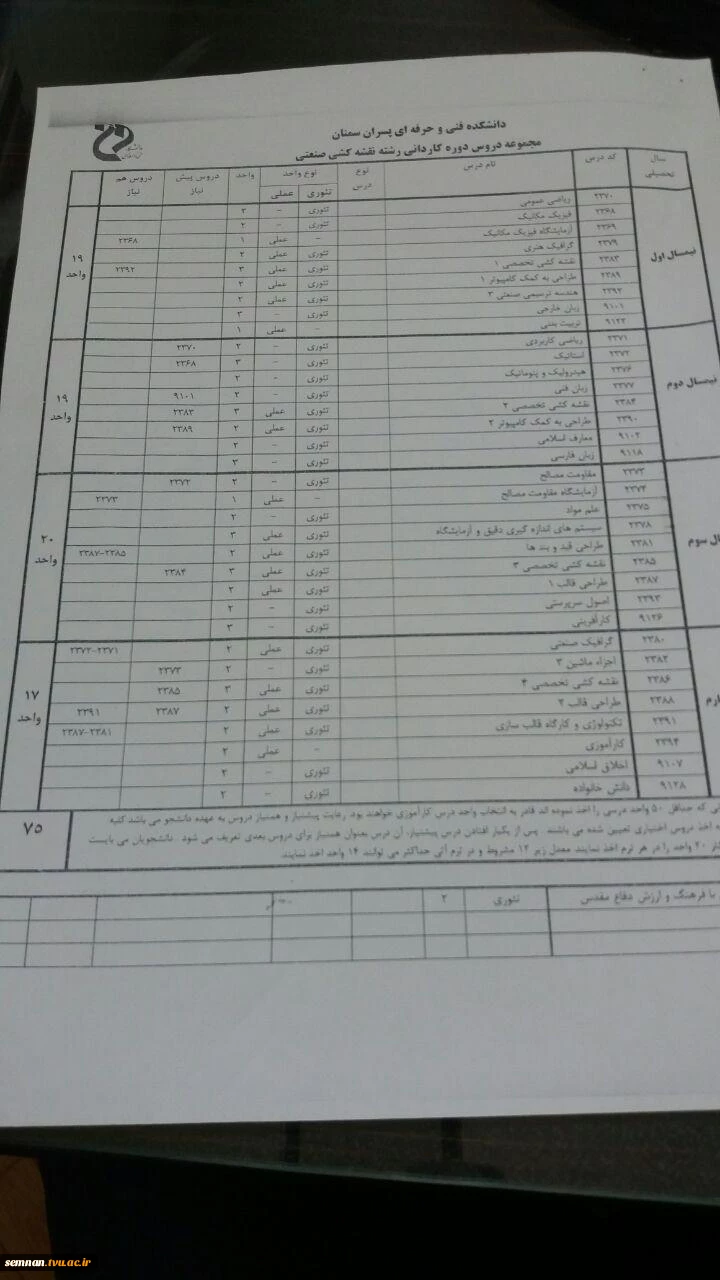 دانشکده فنی و حرفه ای پسران سمنان
مجموعه دروس دوره کاردانی رشته نقشه کشی صنعتی
سال تحصیلی کد درس نام درس نوع درس نوع واحد تئوری عملی واحد دروس پیش نیاز دروس هم نیاز
نیمسال اول
۲۳۷۰ ریاضی عمومی تئوری - ۲
۲۳۶۸ فیزیک مکانیک تئوری - ۲
۲۳۶۹ آزمایشگاه فیزیک مکانیک - عملی ۱ ۲۳۶۸
۲۳۷۹ گرافیک هنری تئوری عملی ۲
۲۳۸۳ نقشه کشی تخصصی ۱ تئوری عملی ۳ ۲۳۹۲
۲۳۸۹ طراحی به کمک کامپیوتر ۱ تئوری عملی ۲
۲۳۹۲ هندسه ترسیمی صنعتی ۳ تئوری عملی ۲
۹۱۰۱ زبان خارجی تئوری - ۳
۹۱۲۳ تربیت بدنی - عملی ۱
۱۹ واحد
نیمسال دوم
۲۳۷۱ ریاضی کاربردی تئوری - ۲ ۲۳۷۰
۲۳۷۲ استاتیک تئوری - ۳ ۲۳۶۸
۲۳۷۶ هیدرولیک و پنوماتیک تئوری - ۲
۲۳۷۷ زبان فنی تئوری - ۲ ۹۱۰۱
۲۳۸۴ نقشه کشی تخصصی ۲ تئوری عملی ۳ ۲۳۸۳
۲۳۹۰ طراحی به کمک کامپیوتر ۲ تئوری عملی ۲ ۲۳۸۹
۹۱۰۲ معارف اسلامی تئوری - ۲
۹۱۱۸ زبان فارسی تئوری - ۳
۱۹ واحد
ال سوم
۲۳۷۳ مقاومت مصالح تئوری - ۲ ۲۳۷۲
۲۳۷۴ آزمایشگاه مقاومت مصالح - عملی ۱ ۲۳۷۳
۲۳۷۵ علم مواد تئوری - ۲
۲۳۷۸ سیستم های اندازه گیری دقیق و آزمایشگاه تئوری عملی ۳
۲۳۸۱ طراحی قید و بند ها تئوری عملی ۲ ۲۳۸۷-۲۳۸۵
۲۳۸۵ نقشه کشی تخصصی ۳ تئوری عملی ۳ ۲۳۸۴
۲۳۸۷ طراحی قالب ۱ تئوری عملی ۲
۲۳۹۳ اصول سرپرستی تئوری - ۲
۹۱۲۶ کارآفرینی تئوری - ۳
۲۰ واحد
ارم
۲۳۸۰ گرافیک صنعتی تئوری عملی ۲ ۲۳۷۲-۲۳۷۱
۲۳۸۲ اجزاء ماشین ۳ تئوری - ۲ ۲۳۷۳
۲۳۸۶ نقشه کشی تخصصی ۴ تئوری عملی ۳ ۲۳۸۵
۲۳۸۸ طراحی قالب ۲ تئوری عملی ۲ ۲۳۸۷ ۲۳۹۱
۲۳۹۱ تکنولوژی و کارگاه قالب سازی تئوری عملی ۲ ۲۳۸۷-۲۳۸۱
۲۳۹۴ کارآموزی - عملی ۲
۹۱۰۷ اخلاق اسلامی تئوری - ۲
۹۱۲۸ دانش خانواده تئوری - ۲
۱۷ واحد
که حداقل ۵۰ واحد درسی را اخذ نموده اند قادر به انتخاب واحد درس کارآموزی خواهند بود. رعایت پیشنیاز و همنیاز دروس به عهده دانشجو می باشد کلیه
اخذ دروس اختیاری تعیین شده می باشند. پس از یکبار افتادن درس پیشنیاز، آن درس بعنوان همنیاز برای دروس بعدی تعریف می شود. دانشجویان می بایست
۲۰ واحد را در هر ترم اخذ نمایند معدل زیر ۱۲ مشروط و در ترم آتی حداکثر می توانند ۱۴ واحد اخذ نمایند
۷۵
با فرهنگ و ارزش دفاع مقدس تئوری ۲
semnan.tvu.ac.ir